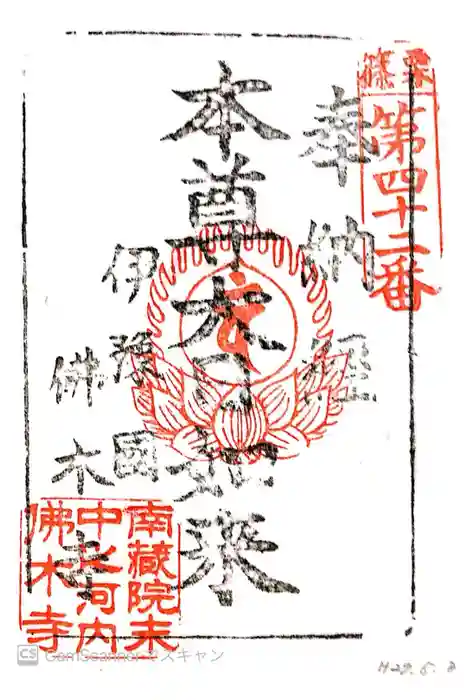 篠栗
第四十二番
奉納經
本尊大日如来
伊豫國
佛木寺
南藏院末
中ノ河内
佛木寺
CS CamScanner でスキャン
H29.5.3